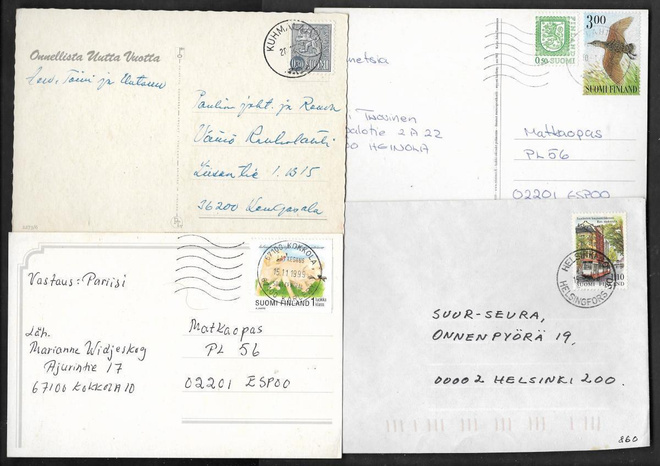 Onnellista Uutta Vuotta
KUHMALAHTI
0,30 SUOMI
Pauliin joht. ja Rouva
Väinö Rauhalahti
Liisantie 1. B 15
36200 Kangasala
netsia
2 A 22
00 HEINOLA
0,50 SUOMI
3,00
SUOMI FINLAND
Matkaopas
PL 56
02201 ESPOO
Vastaus: Pariisi
Läh.
Marianne Widjeskog
Ajurintie 17
67100 KOKKOLA 10
67100 KOKKOLA
15.11.1995
SUOMI FINLAND 1
Matkaopas
PL 56
02201 ESPOO
HELSINKI
HELSINGFORS
SUOMI FINLAND
SUUR-SEURA,
ONNENPYÖRÄ 19,
00002 HELSINKI 200.
860